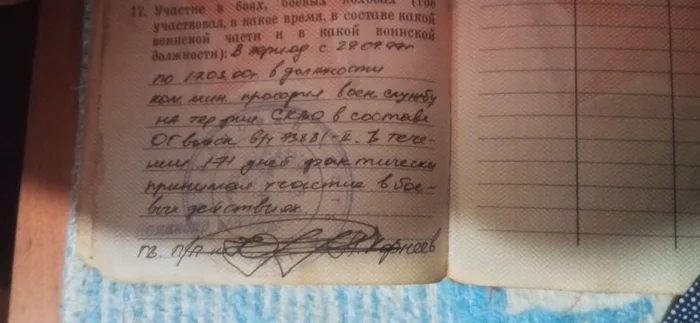 17. Участие в боях, боевых походах (где
участвовал, в какое время, в составе какой
воинской части и в какой воинской
должности): В период с
по 17.03.00г в должности
ком мин проходил воен службу
на тер рии СКВО в составе
ОГ войск в/ч В тече-
нии 171 дней фактически
принимал участие в бое-
вых действиях.
Корнеев